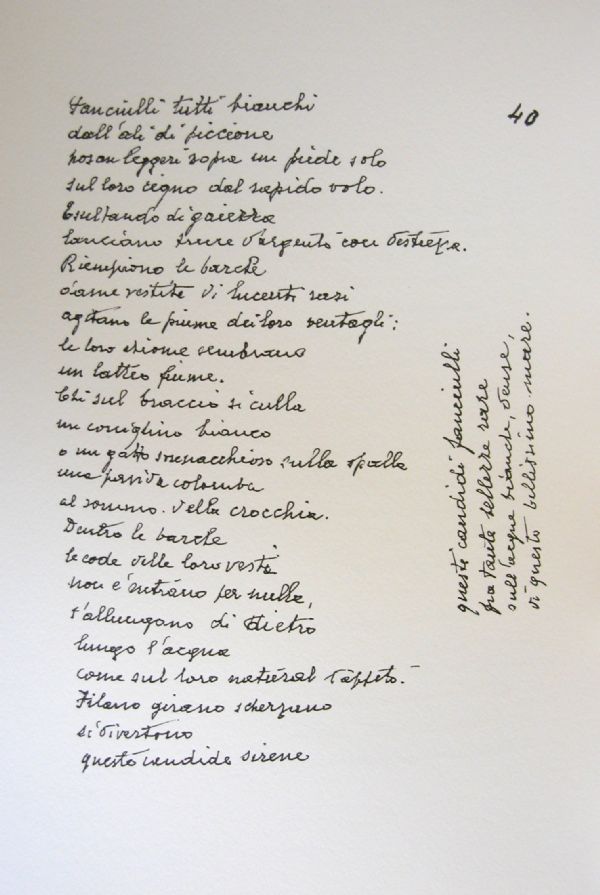 40
Fanciulli tutti bianchi
dall'ali di piccione
posan leggeri sopra un piede solo
sul loro cigno dal rapido volo.
Esultando di gaiezza
lanciano frecce d'argento con destrezza.
Riempiono le barche
dame vestite di lucenti rasi
agitano le piume dei loro ventagli:
le loro chiome sembrano
un latteo fiume.
Chi sul braccio si culla
un coniglino bianco
o un gatto sornacchioso, sulla spalla
una pavida colomba
al sommo della crocchia.
Dentro le barche
le code delle loro vesti
non c'entrano per nulla,
s'allungano di dietro
lungo l'acqua
come sul loro natural tappeto.
Filano girano scherzano
si divertono
queste candide sirene
questi candidi fanciulli
fra tante bellezze rare
sull'acque bianche, dense,
di questo bellissimo mare.